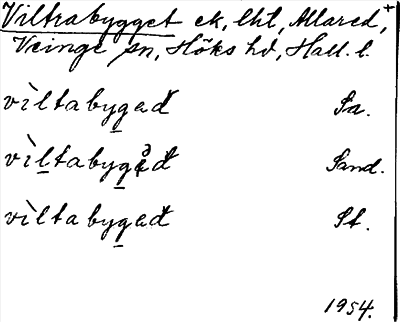 Viltrabygget ek, lht, Allared, +
Veinge sn, Höks hd, Hall. l.
vìltabygađ Sa.
vìltabygađ Sand.
vìltabygađ St.
1954.